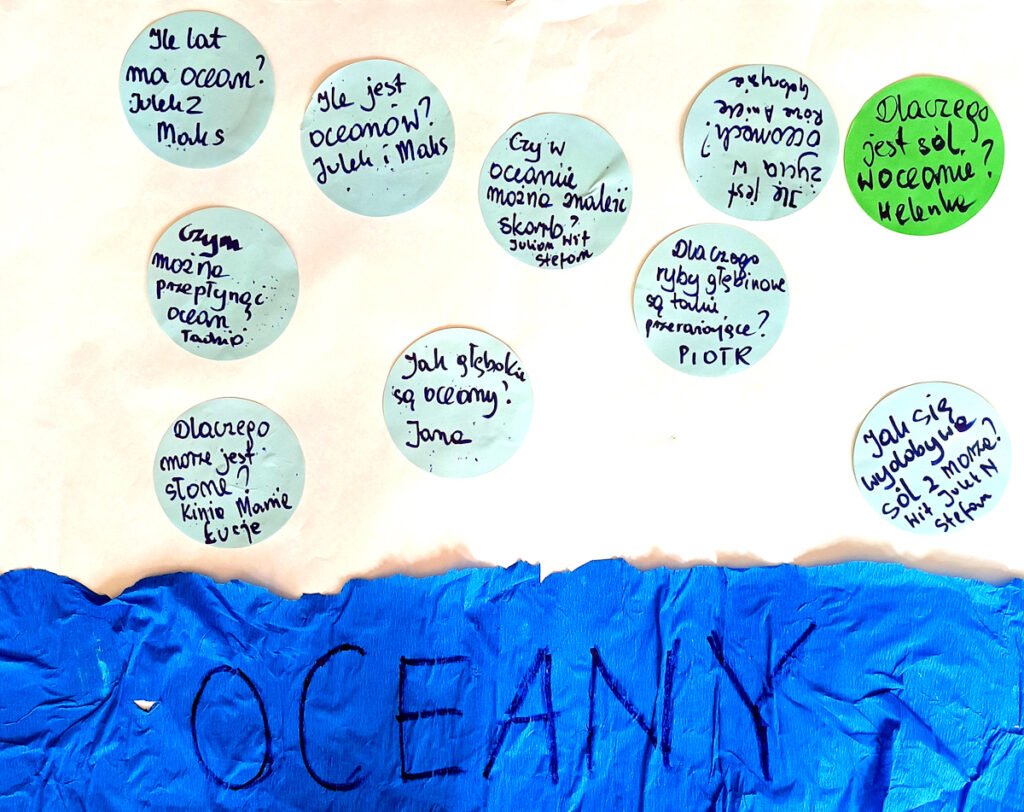 Ile lat
ma ocean?
Julek Z
Maks
Ile jest
oceanów?
Julek i Maks
Czy w
oceanie
można znaleźć
skarb?
Julian Wit
Stefan
Ile jest
życia w
oceanach?
Róża Aniela
Gabrysia
Dlaczego
jest sól
w oceanie?
Helenka
Czym
można
przepłynąć
ocean?
Dlaczego
ryby głębinowe
są takie
przerażające?
PIOTR
Jak głębokie
są oceany?
Jana
Dlaczego
morze jest
słone?
Kinia Mania
Łucja
Jak się
wydobywa
sól z morza?
Wit Julek N
Stefan
OCEANY